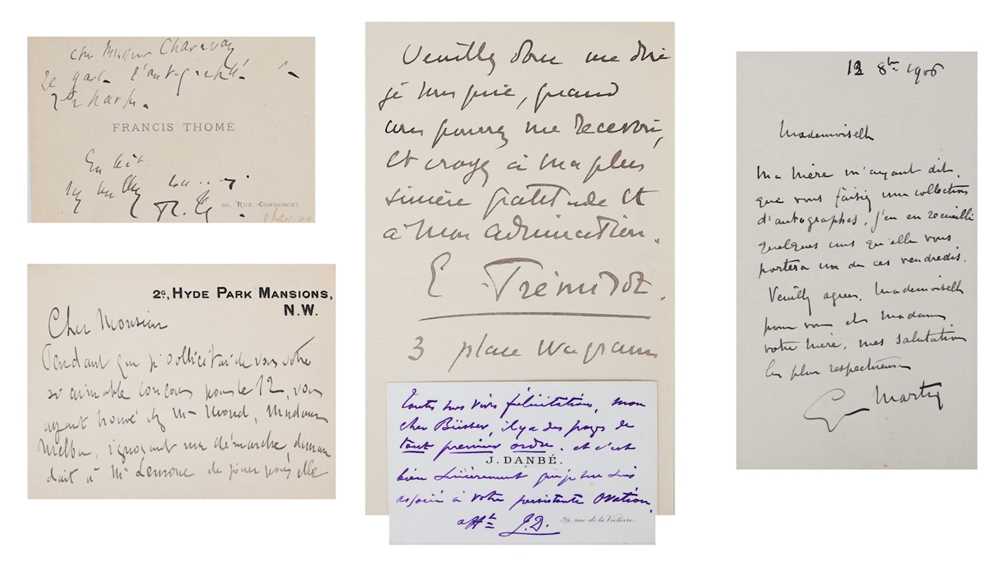 cher Monsieur Charavay
Je garde l'autographe
FRANCIS THOMÉ
RUE
2G, HYDE PARK MANSIONS,
N.W.
Cher Monsieur
Pendant que je sollicitais de vous votre
si aimable concours pour le 12, vous
ayant trouvé chez Mrs Mond, Madame
Melba, ignorant ma démarche, deman
dait à Mr de pour elle
Veuillez donc me dire
je vous prie, quand
vous pourrez me recevoir,
et croyez à ma plus
sincère gratitude et
à mon admiration.
E Trémisot.
3 place Wagram
Toutes mes vives félicitations, mon
cher Büsser, il y a des pages de
tout premier ordre. et c'est
J. DANBÉ.
bien sincèrement que je me suis
associé à votre persistante ovation.
afft J.D.
rue de la Victoire.
12 8bre 1906
Mademoiselle
Ma mère m'ayant dit,
que vous faisiez une collection
d'autographes, j'en ai recueilli
quelques uns qu'elle vous
portera un de ces vendredis.
Veuillez agréer, Mademoiselle
pour vous et Madame
votre mère, mes salutations
les plus respectueuses
G Marty